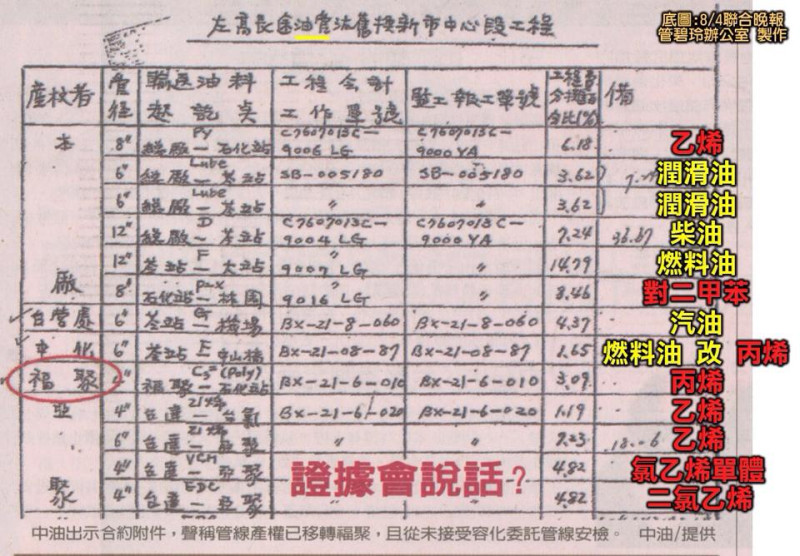 底圖:8/4聯合晚報
管碧玲辦公室 製作
左高長途油管汰舊換新市中心段工程
產权者 管徑 輸送油料起訖点 工程会計工作單號 竪工報工單號 工程費分攤百分比(%) 備
本 8" 総廠—石化站 C7607013C—9006 LG C7607013C—9000YA 6.18 乙烯
6" Lube 総廠—苓站 SB-005180 SB-005180 3.62 潤滑油
6" Lube 総廠—苓站 " " 3.62 潤滑油
12" D 総廠—苓站 C7607013C—9004 LG C7607013C—9000YA 7.24 柴油
12" F 苓站—大站 " 9007 LG " 14.79 燃料油
廠 8" 石化站—林園 " 9016 LG " 8.46 對二甲苯
台管處 6" G 苓站—機場 BX-21-8-060 BX-21-8-060 4.37 汽油
中化 6" 苓站 中山橋 BX-21-08-87 BX-21-08-87 1.65 燃料油 改 丙烯
福聚 (Poly) 福聚—石化站 BX-21-6-010 BX-21-6-010 3.09 丙烯
亞 4" 乙烯 台達—台氯 BX-21-6-020 BX-21-6-020 1.19 乙烯
6" 乙烯 台達—亞聚 " " 7.23 乙烯
4" VCM 台達—亞聚 4.82 氯乙烯單體
聚 4" EDC 台達—亞聚 4.82 二氯乙烯
證據會說話?
中油出示合約附件，聲稱管線產權已移轉福聚，且從未接受容化委託管線安檢。 中油/提供